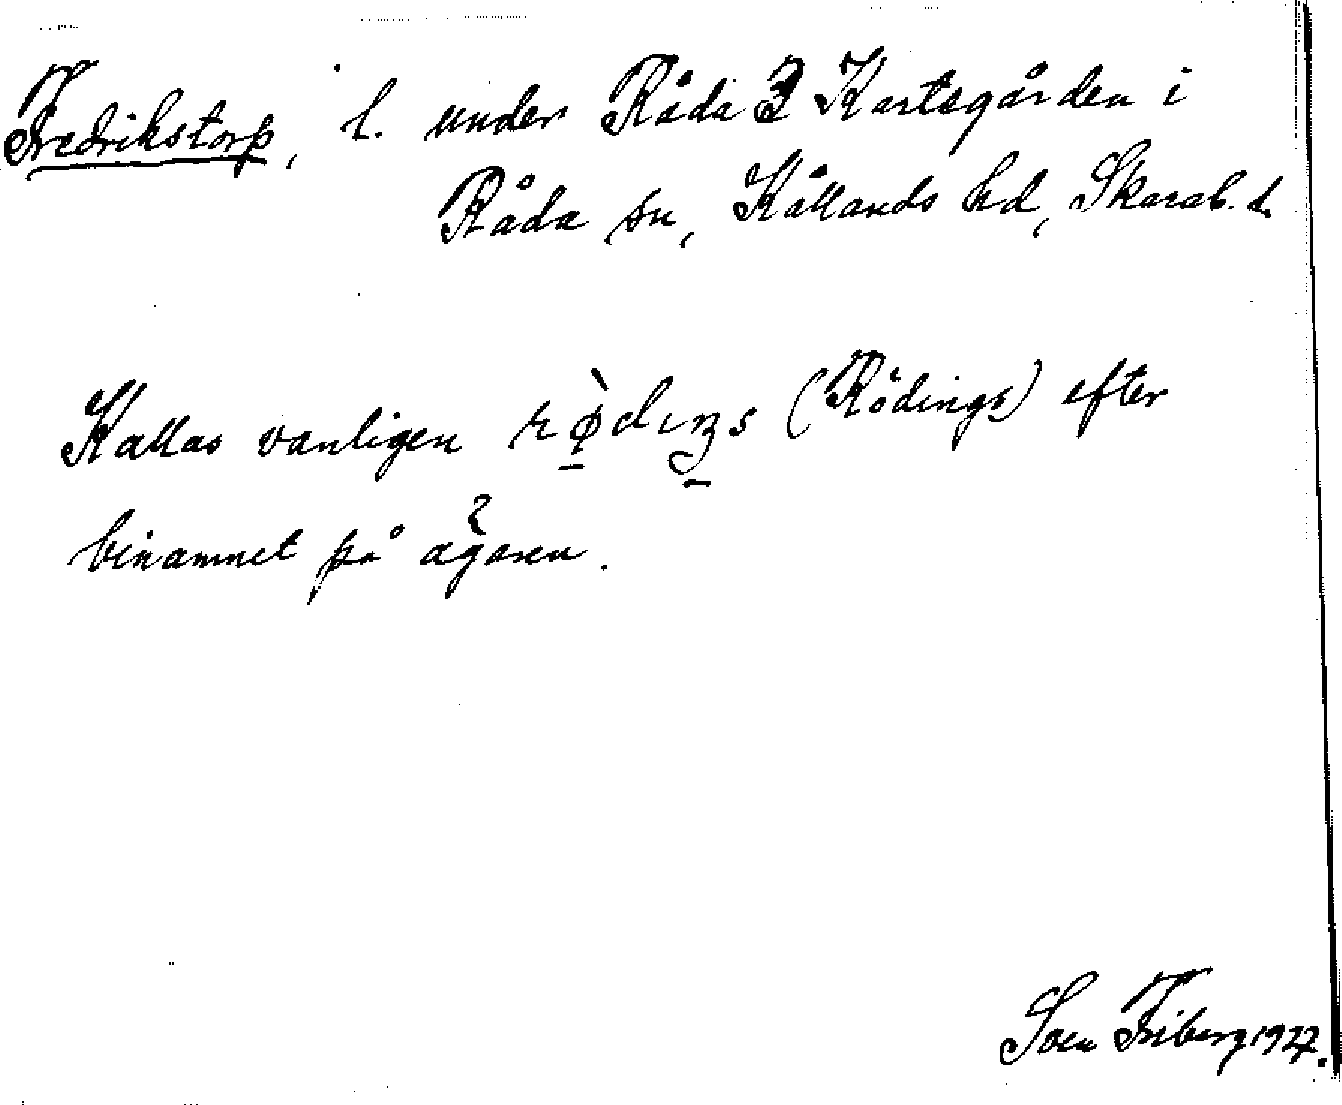 Fredrikstorp, l. under Råda 3 Kartegården i
Råda sn, Kållands hd, Skarab. l.
Kallas vanligen rø̀dıŋs (Rödings) efter
binamnet på ägaren.
Sven Friberg 1927.